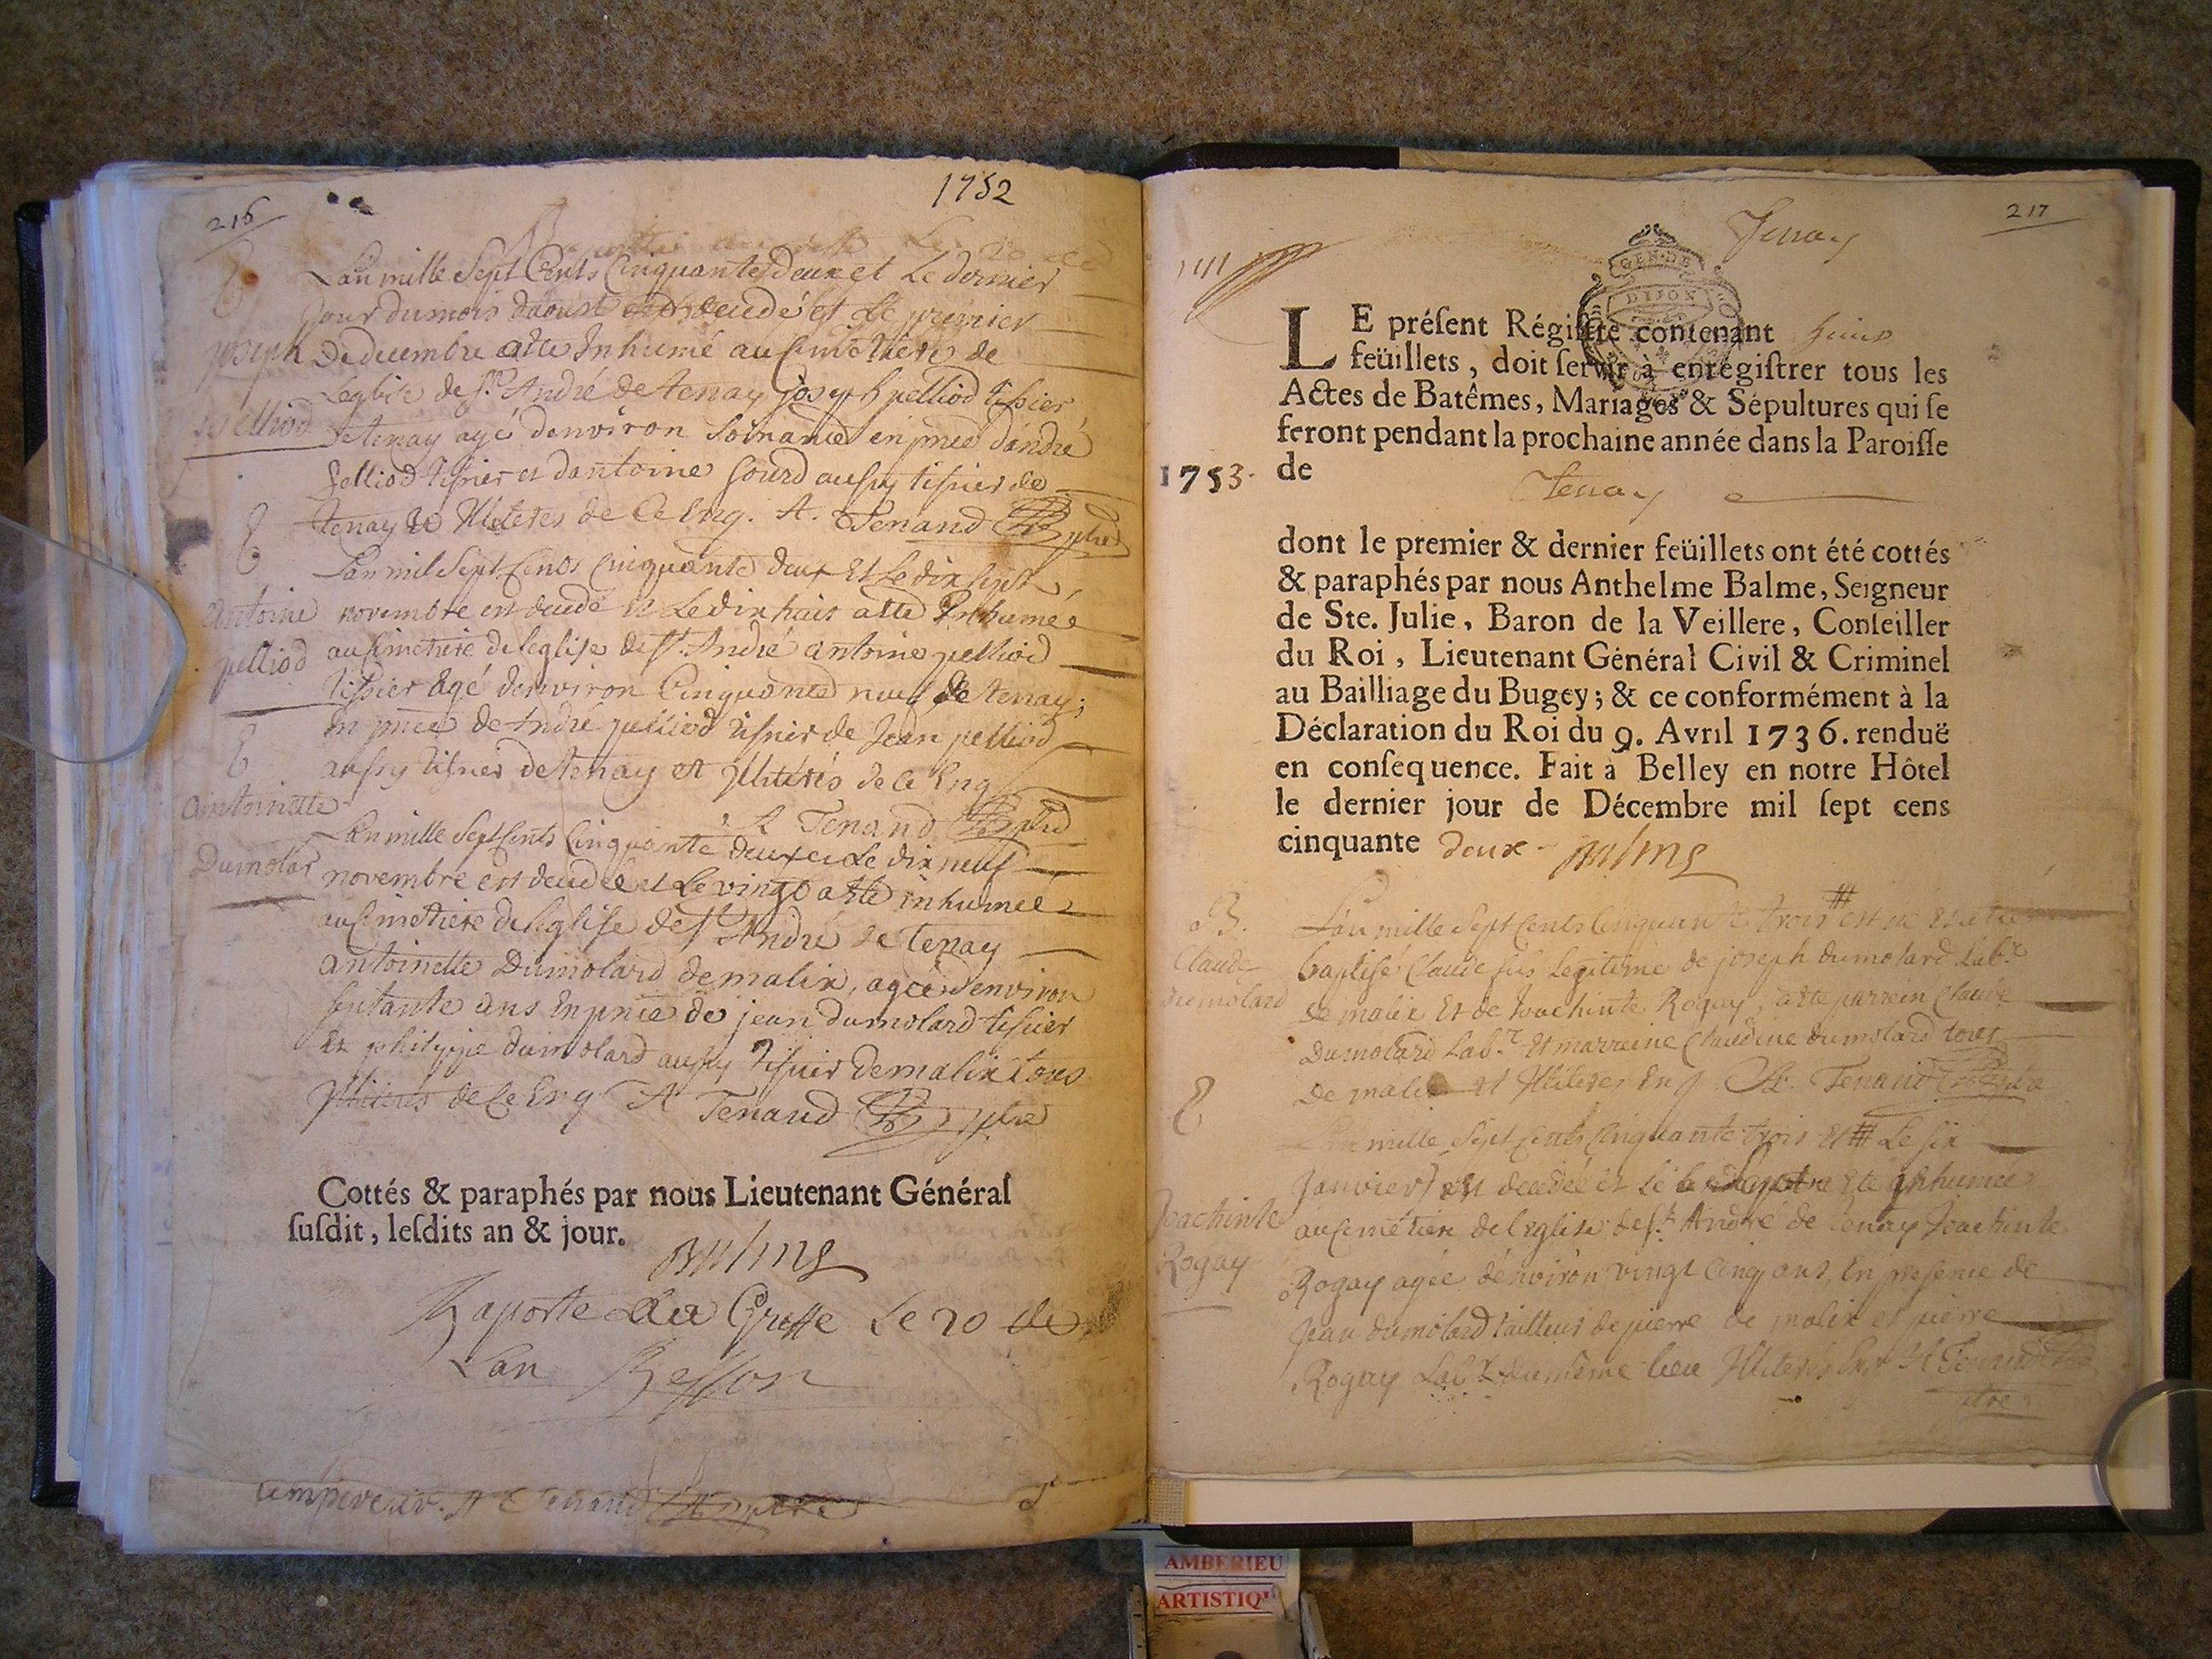 1752
216
L'an mille Sept Cents Cinquante deux et Le dernier
Jour du mois daoust est decedé et Le premier
joseph
De decembre atte Inhumé au Cimethiere de
L'eglise de St. André de tenay joseph pelliod tissier
pelliod
de tenay agé denviron soixante en pnce dandré
pelliod tissier et dantoine sourd aussy tissier de
tenay et Illiteres de Ce Enq. A. Tenand ptre
L'an mil Sept Cents Cinquante deux Et Le dix sept
antoine
novembre est decedé et Le dix huit atte Inhumé
pelliod
au Cimetiere de leglise de St André antoine pelliod
tissier agé denviron Cinquante neuf de tenay;
En pnce de André pelliod tissier de Jean pelliod
aussy tissier de tenay et Illiterés de ce Enq
A Tenand ptre
antoinette
L'an mille Sept Cents Cinquante deux et Le dix neuf
Dumolar
novembre est decedée et Le vingt atte inhumée
au Cimetiere de l'eglise de St André de tenay
antoinette Dumolard de malix, agée denviron
septante ans En pnce de jean dumolard tissier
Et philippe dumolard aussy tissier de malix tous
Illiteres de Ce Enq A Tenand ptre
Cottés & paraphés par nous Lieutenant Général
ſuſdit, leſdits an & jour.
Balme
Raporte au Greffe Le 20
Lan Besson
A Tenand ptre
217
Tenay
GEN. DE
DIJON
LE préſent Régiſtre contenant huit
feüillets, doit ſervir à enrégiſtrer tous les
Actes de Batêmes, Mariages & Sépultures qui ſe
feront pendant la prochaine année dans la Paroiſſe
1753.
de
Tenay
dont le premier & dernier feüillets ont été cottés
& paraphés par nous Anthelme Balme, Seigneur
de Ste. Julie, Baron de la Veillere, Conſeiller
du Roi, Lieutenant Général Civil & Criminel
au Bailliage du Bugey; & ce conformément à la
Déclaration du Roi du 9. Avril 1736. renduë
en conſequence. Fait à Belley en notre Hôtel
le dernier jour de Décembre mil ſept cens
cinquante deux Balme
B.
L'an mille Sept Cents Cinquante trois # est né Et atte
Claude
baptisé Claude fils Legitime de joseph dumolard Labr
dumolard
de malix Et de Joachinte Rogay, atte parrein Claude
Dumolard Labr. Et marreine Claudine dumolard tous
De malix et Illiteres Enq. A. Tenand ptre
L'an mille Sept Cents Cinquante trois Et # Le six
Janvier est decedée et Le atte Inhumée
Joachinte
au Cimetiere de l'Eglise de St. André de tenay Joachinte
Rogay
Rogay agée denviron vingt Cinq ans, En presence de
Jean dumolard tailleur de pierre de malix et pierre
Rogay Labr du même lieu Illiterés Enq A Tenand
ptre
AMBERIEU
ARTISTIQ